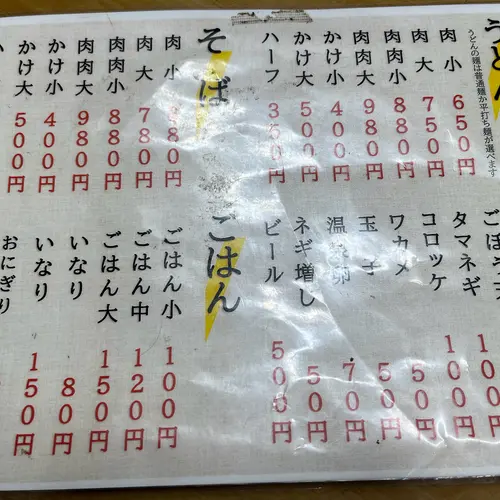 うどん
うどんの麺は普通麺か平打ち麺が選べます
肉 小 650円
肉 大 750円
肉肉小 880円
肉肉大 980円
かけ小 400円
かけ大 500円
ハーフ 350円
そば
肉 小
肉 大 780円
肉肉小 880円
肉肉大 980円
かけ小 400円
かけ大 500円
タマネギ 100円
コロッケ 100円
ワカメ 100円
玉子 50円
温泉卵 70円
ネギ増し 50円
ビール 500円
ごはん
ごはん小 100円
ごはん中 120円
ごはん大 150円
いなり 80円
いなり 150円
おにぎり